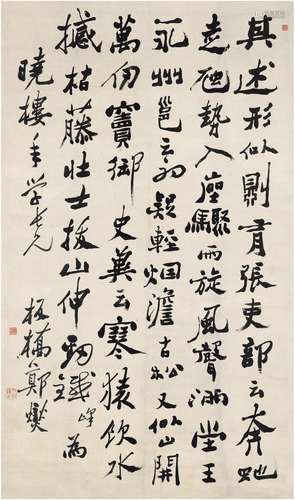 其述形似則有張吏部云奔虵
走虺勢入座驟雨旋風聲滿堂王
永州邕云初疑輕烟澹古松又似山開
萬仞竇御史冀云寒猿飲水
撼枯藤壯士拔山伸勁鐵 峰 為
曉樓年學老兄
板橋鄭燮